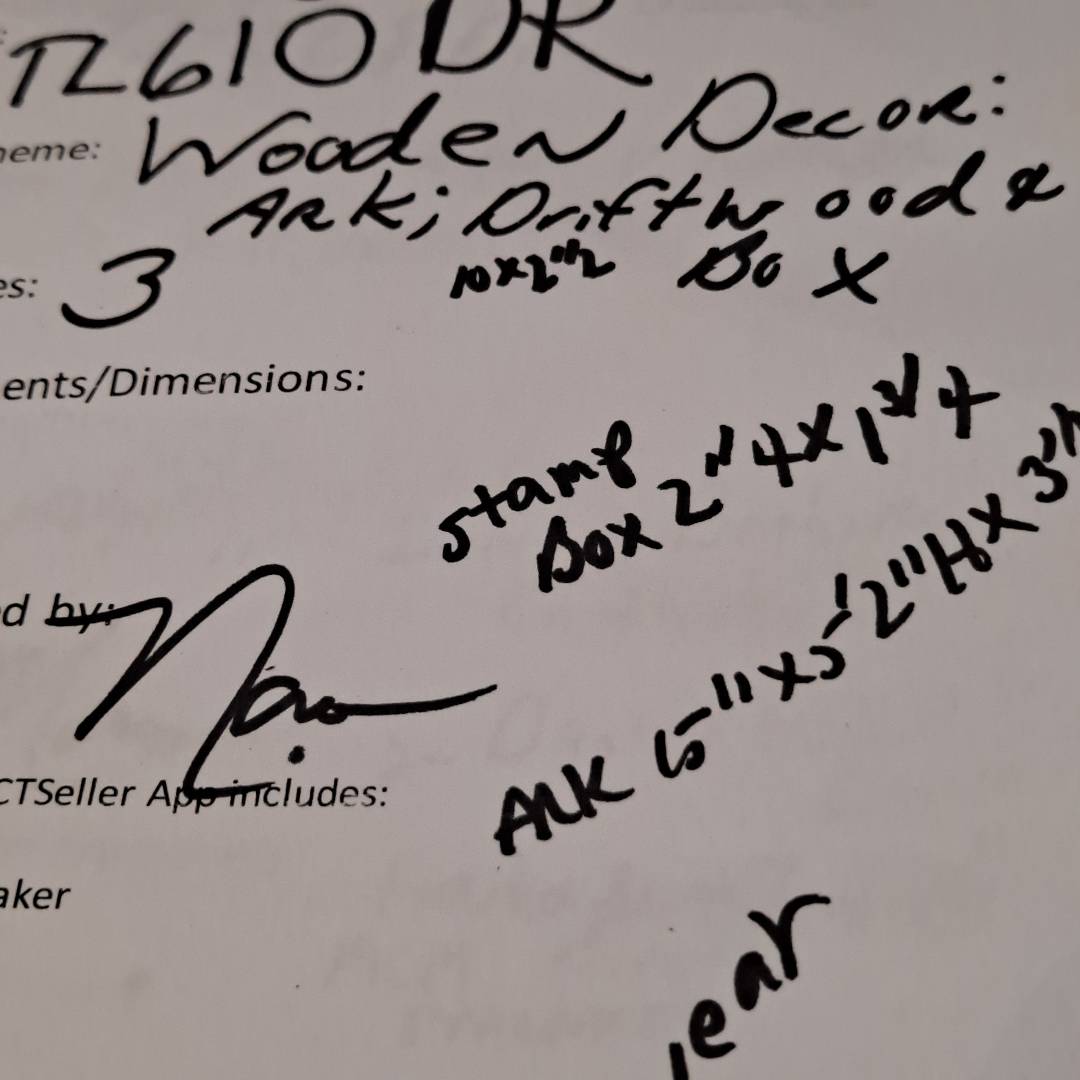 TL610 DR
heme: Wooden Decor:
ARK; Driftwood &
es: 3 10x2"1/2 Box
ents/Dimensions:
stamp
Box 2"4x1 3/4
d by:
ARK 15"x5'2"Hx3"
CTSeller App includes:
aker
ear